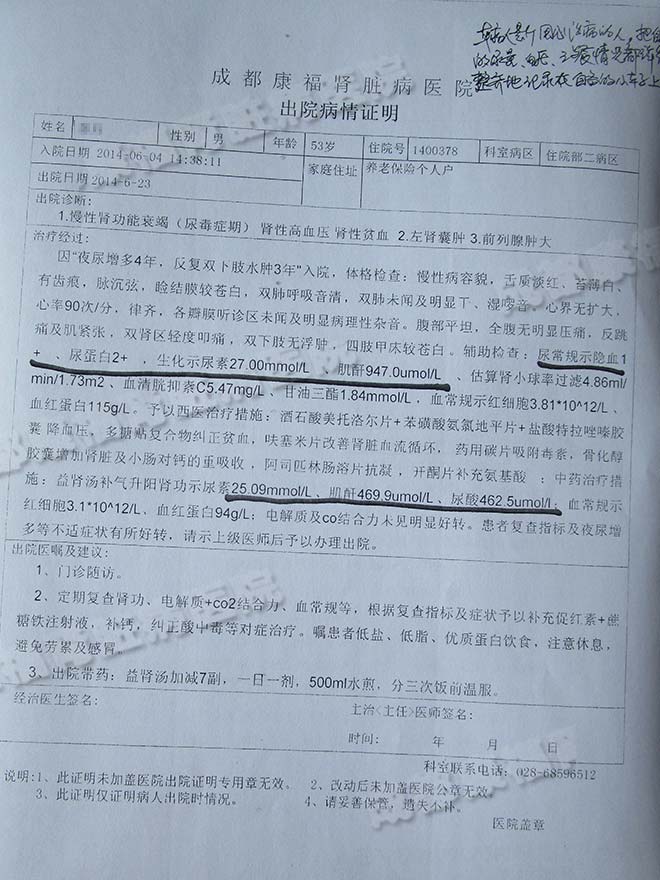 本病人是个用心治病的人，把自
的尿蛋、血
整齐地记录在自己的小本子上
成都康福肾脏病医院
出院病情证明
姓名 性别 男 年龄 53岁 住院号 1400378 科室病区 住院部二病区
入院日期 2014-06-04 14:38:11 家庭住址 养老保险个人户
出院日期 2014-6-23
出院诊断：
1.慢性肾功能衰竭（尿毒症期） 肾性高血压 肾性贫血 2.左肾囊肿 3.前列腺肿大
治疗经过：
因"夜尿增多4年，反复双下肢水肿3年"入院，体格检查：慢性病容貌，舌质淡红、苔薄白、
有齿痕，脉沉弦，睑结膜较苍白，双肺呼吸音清，双肺未闻及明显干、湿啰音，心界无扩大，
心率90次/分，律齐，各瓣膜听诊区未闻及明显病理性杂音。腹部平坦，全腹无明显压痛，反跳
痛及肌紧张，双肾区轻度叩痛，双下肢无浮肿，四肢甲床较苍白。辅助检查：尿常规示隐血1
+ 、尿蛋白2+ ，生化示尿素27.00mmol/L 、肌酐947.0umol/L 、估算肾小球率过滤4.86ml/
min/1.73m2 、血清胱抑素C5.47mg/L 、甘油三酯1.84mmol/L ，血常规示红细胞3.81*10^12/L 、
血红蛋白115g/L。予以西医治疗措施：酒石酸美托洛尔片+苯磺酸氨氯地平片+盐酸特拉唑嗪胶
囊 降血压，多糖贴复合物纠正贫血，呋塞米片改善肾脏血流循环， 药用碳片吸附毒素，骨化醇
胶囊增加肾脏及小肠对钙的重吸收 ，阿司匹林肠溶片抗凝 ，开酮片补充氨基酸 ；中药治疗措
施：益肾汤补气升阳肾功示尿素25.09mmol/L、肌酐469.9umol/L、尿酸462.5umol/l；血常规示
红细胞3.1*10^12/L、血红蛋白94g/L；电解质及co结合力未见明显好转。患者复查指标及夜尿增
多等不适症状有所好转，请示上级医师后予以办理出院。
出院医嘱及建议：
1、门诊随访。
2、定期复查肾功、电解质+co2结合力、血常规等，根据复查指标及症状予以补充促红素+蔗
糖铁注射液，补钙，纠正酸中毒等对症治疗。嘱患者低盐、低脂、优质蛋白饮食，注意休息，
避免劳累及感冒。
3、出院带药：益肾汤加减7副，一日一剂，500ml水煎，分三次饭前温服。
经治医生签名： 主治<主任>医师签名：
时间： 年 月 日
科室联系电话：028-68596512
说明:1、此证明未加盖医院出院证明专用章无效。 2、改动后未加盖医院公章无效。
3、此证明仅证明病人出院时情况。 4、请妥善保管，遗失不补。
医院盖章